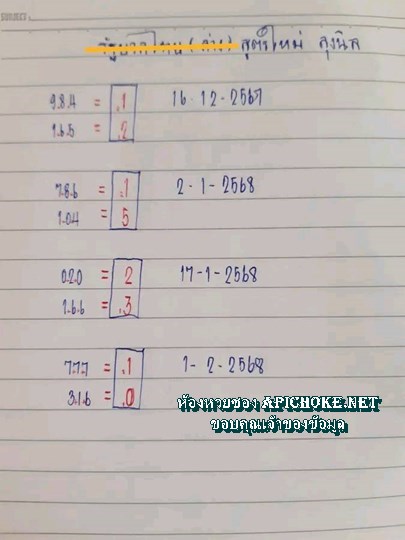 สูตรใหม่ ลุงนิล
9.8.4 = .1 16-12-2567
1.6.5 = .2
7.8.6 = .1 2-1-2568
1.0.4 = 5
0.2.0 = 2 17-1-2568
1.6.6 = .3
7.7.7 = .1 1-2-2568
3.1.6 = .0
ห้องหวยซอง APICHOKE.NET
ขอบคุณเจ้าของข้อมูล